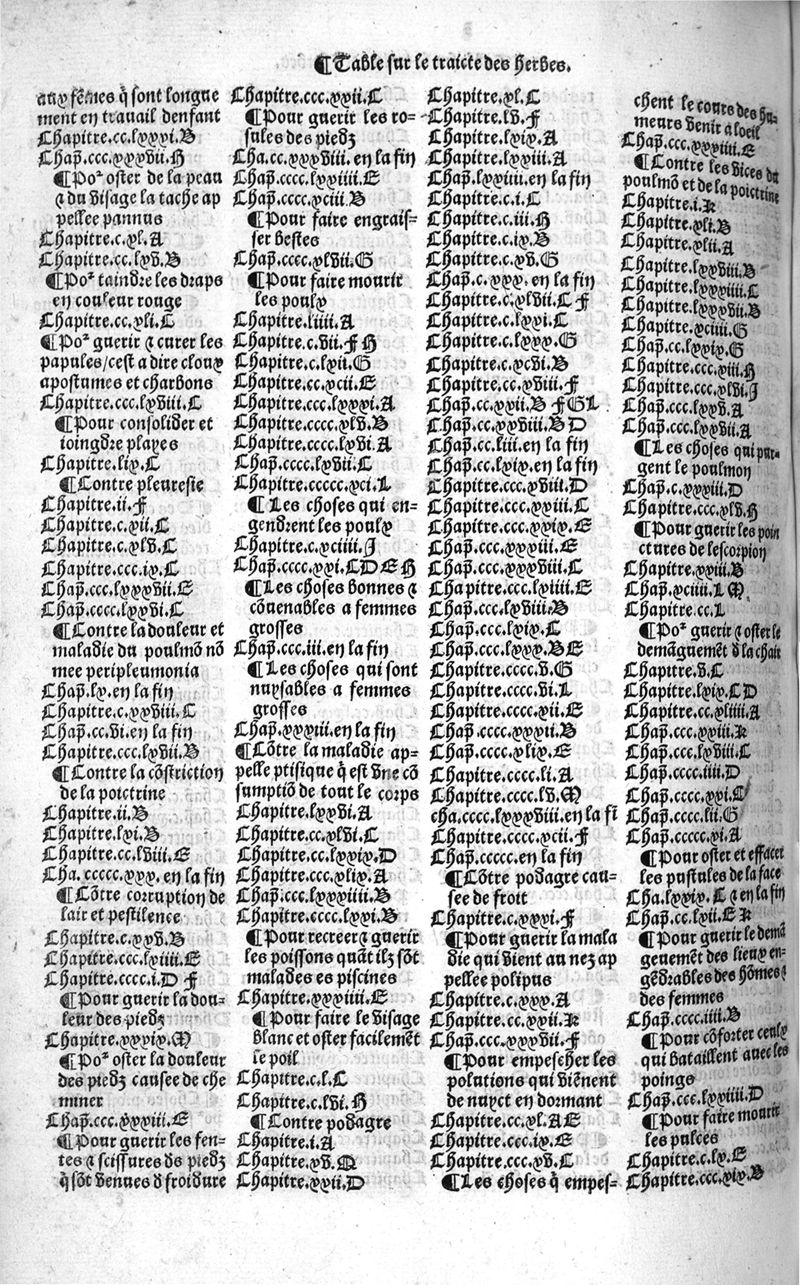 ¶Table sur le traicte des herbes.
aux fẽmes q̃ sont longue
ment en trauail denfant
Chapitre.cc.lxxxi.B
Chap̃.ccc.xxxvii.H
¶Po² oster de la peau
⁊ du visage la tache ap
pellee pannus
Chapitre.c.xl.A
Chapitre.cc.lxv.B
¶Po² taindre les draps
en couleur rouge
Chapitre.cc.xli.C
¶Po² guerir ⁊ curer les
papules/cest a dire cloux
apostumes et charbons
Chapitre.ccc.lxviii.C
¶Pour consolider et
ioingdre playes
Chapitre.lix.C
¶Contre pleuresie
Chapitre.ii.F
Chapitre.c.xii.C
Chapitre.c.xlv.C
Chapitre.ccc.ix.C
Chap̃.ccc.lxxxvii.E
Chap̃.cccc.lxxvi.C
¶Contre la douleur et
maladie du poulmõ nõ
mee peripleumonia
Chap̃.lx.en la fin
Chapitre.c.xxviii.C
Chap̃.cc.vi.en la fin
Chapitre.ccc.lxvii.B
¶Contre la cõstriction
de la poictrine
Chapitre.ii.B
Chapitre.lxi.B
Chapitre.cc.lviii.E
Cha.ccccc.xxx.en la fin
¶Cõtre corruption de
lair et pestilence
Chapitre.c.xxv.B
Chap̃.ccc.lxiiii.E
Chapitre.cccc.i.D F
¶Pour guerir la dou-
leur des piedz
Chapitre.xxxix.M
¶Po² oster la douleur
des piedz causee de che
miner
Chap̃.ccc.xxxiii.E
¶Pour guerir les fen-
tes ⁊ scissures ds piedz
q̃ sõt venues d froidure
Chapitre.ccc.xxii.C
¶Pour guerir les ro-
sules des piedz
Cha.cc.xxviii.en la fin
Chap̃.cccc.lxxiiii.E
Chap̃.cccc.xciii.B
¶Pour faire engrais-
ser bestes
Chap̃.cccc.xlvii.G
¶Pour faire mourir
les poulx
Chapitre.liiii.A
Chapitre.c.vii.F H
Chapitre.c.lxii.G
Chapitre.cc.xcii.E
Chapitre.ccc.lxxxi.A
Chapitre.cccc.lxv.B
Chapitre.cccc.lxvi.A
Chap̃.cccc.lxvii.C
Chapitre.ccccc.xci.L
¶Les choses qui en-
gendrent les poulx
Chapitre.c.xciiii.J
Chap̃.cccc.xxi.C D E H
¶Les choses bonnes ⁊
cõuenables a femmes
grosses
Chap̃.ccc.iii.en la fin
¶Les choses qui sont
nuysables a femmes
grosses
Chap̃.xxxiii.en la fin
¶Cõtre la maladie ap-
pelle ptisique q̃ est vne cõ
sumptiõ de tout le corps
Chapitre.lxxvi.A
Chapitre.cc.xlvi.C
Chapitre.cc.lxxix.D
Chapitre.ccc.xlix.A
Chap̃.ccc.lxxxiiii.B
Chapitre.cccc.lxxi.B
¶Pour recreer ⁊ guerir
les poissons quãt ilz sõt
malades es piscines
Chapitre.xxxiiii.E
¶Pour faire le visage
blanc et oster facilemẽt
le poil
Chapitre.c.l.C
Chapitre.c.lvi.H
¶Contre podagre
Chapitre.i.A
Chapitre.xv.Q
Chapitre.xxii.D
Chapitre.xl.C
Chapitre.lv.F
Chapitre.lxix.A
Chapitre.lxxiii.A
Chap̃.lxxiiii.en la fin
Chapitre.c.i.C
Chapitre.c.iii.H
Chapitre.c.ix.B
Chapitre.c.xv.G
Chap̃.c.xxx.en la fin
Chapitre.c.xlvii.C F
Chapitre.c.lxxi.C
Chapitre.c.lxxx.G
Chapitre.c.xcvi.B
Chapitre.cc.xviii.F
Chap̃.cc.xxii.B F G L
Chap̃.cc.xxviii.B D
Chap̃.cc.liii.en la fin
Chap̃.cc.lxix.en la fin
Chapitre.ccc.xviii.D
Chapitre.ccc.xxiii.C
Chapitre.ccc.xxix.E
Chap̃.ccc.xxxiii.E
Chap̃.ccc.xxxviii.C
Chapitre.ccc.lxiiii.E
Chap̃.ccc.lxviii.B
Chap̃.ccc.lxix.C
Chap̃.ccc.lxxx.B E
Chapitre.cccc.v.G
Chapitre.cccc.vi.L
Chapitre.cccc.xii.E
Chap̃.cccc.xxxii.B
Chap̃.cccc.xlix.E
Chapitre.cccc.li.A
Chapitre.cccc.lv.M
cha.cccc.lxxxviii.en la fi
Chapitre.cccc.xcii.F
Chap̃.ccccc.en la fin
¶Cõtre podagre cau-
see de froit
Chapitre.c.xxxi.F
¶Pour guerir la mala
die qui vient au nez ap
pellee polipus
Chapitre.c.xxx.A
Chapitre.cc.xxii.K
Chap̃.ccc.xxxvii.F
¶Pour empescher les
polutions qui viẽnent
de nuyct en dormant
Chapitre.cc.xl.A E
Chapitre.ccc.ix.E
Chapitre.ccc.xv.C
¶Les choses q̃ empes-
chent le cours des hu-
meurs venir a loeil
Chap̃.ccc.xxxiiii.E
¶Contre les vices du
poulmõ et de la poictrine
Chapitre.i.K
Chapitre.xli.B
Chapitre.xlii.A
Chapitre.lxxviii.B
Chapitre.lxxxiiii.C
Chapitre.lxxxvii.B
Chapitre.xciiii.G
Chap̃.cc.lxxix.G
Chapitre.ccc.xiii.H
Chapitre.ccc.xlvi.J
Chap̃.ccc.lxxv.A
Chap̃.ccc.lxxvii.A
¶Les choses qui pur-
gent le poulmon
Chap̃.c.xxxiii.D
Chapitre.ccc.xlv.H
¶Pour guerir les poin
ctures de lescorpion
Chapitre.xxiii.B
Chap̃.xciiii.L M
Chapitre.cc.L
¶Po² guerir ⁊ oster le
demãguemẽt d la chair
Chapitre.v.C
Chapitre.lxix.C D
Chapitre.cc.xliiii.A
Chap̃.ccc.xxiii.K
Chap̃.ccc.lxviii.C
Chap̃.cccc.iiii.D
Chap̃.cccc.xxi.C
Chap̃.cccc.lii.G
Chap̃.ccccc.xi.A
¶Pour oster et effacer
les pustules de la face
Cha.lxxix.C ⁊ en la fin
Chap̃.cc.lxii.E K
¶Pour guerir le demã
geuemẽt des lieux en-
gẽdrables des hõmes ⁊
des femmes
Chap̃.cccc.iiii.B
¶Pour cõforter ceulx
qui bataillent auec les
poings
Chap̃.ccc.lxxiiii.D
¶Pour faire mourir
les pulces
Chapitre.c.lx.E
Chapitre.ccc.xix.B